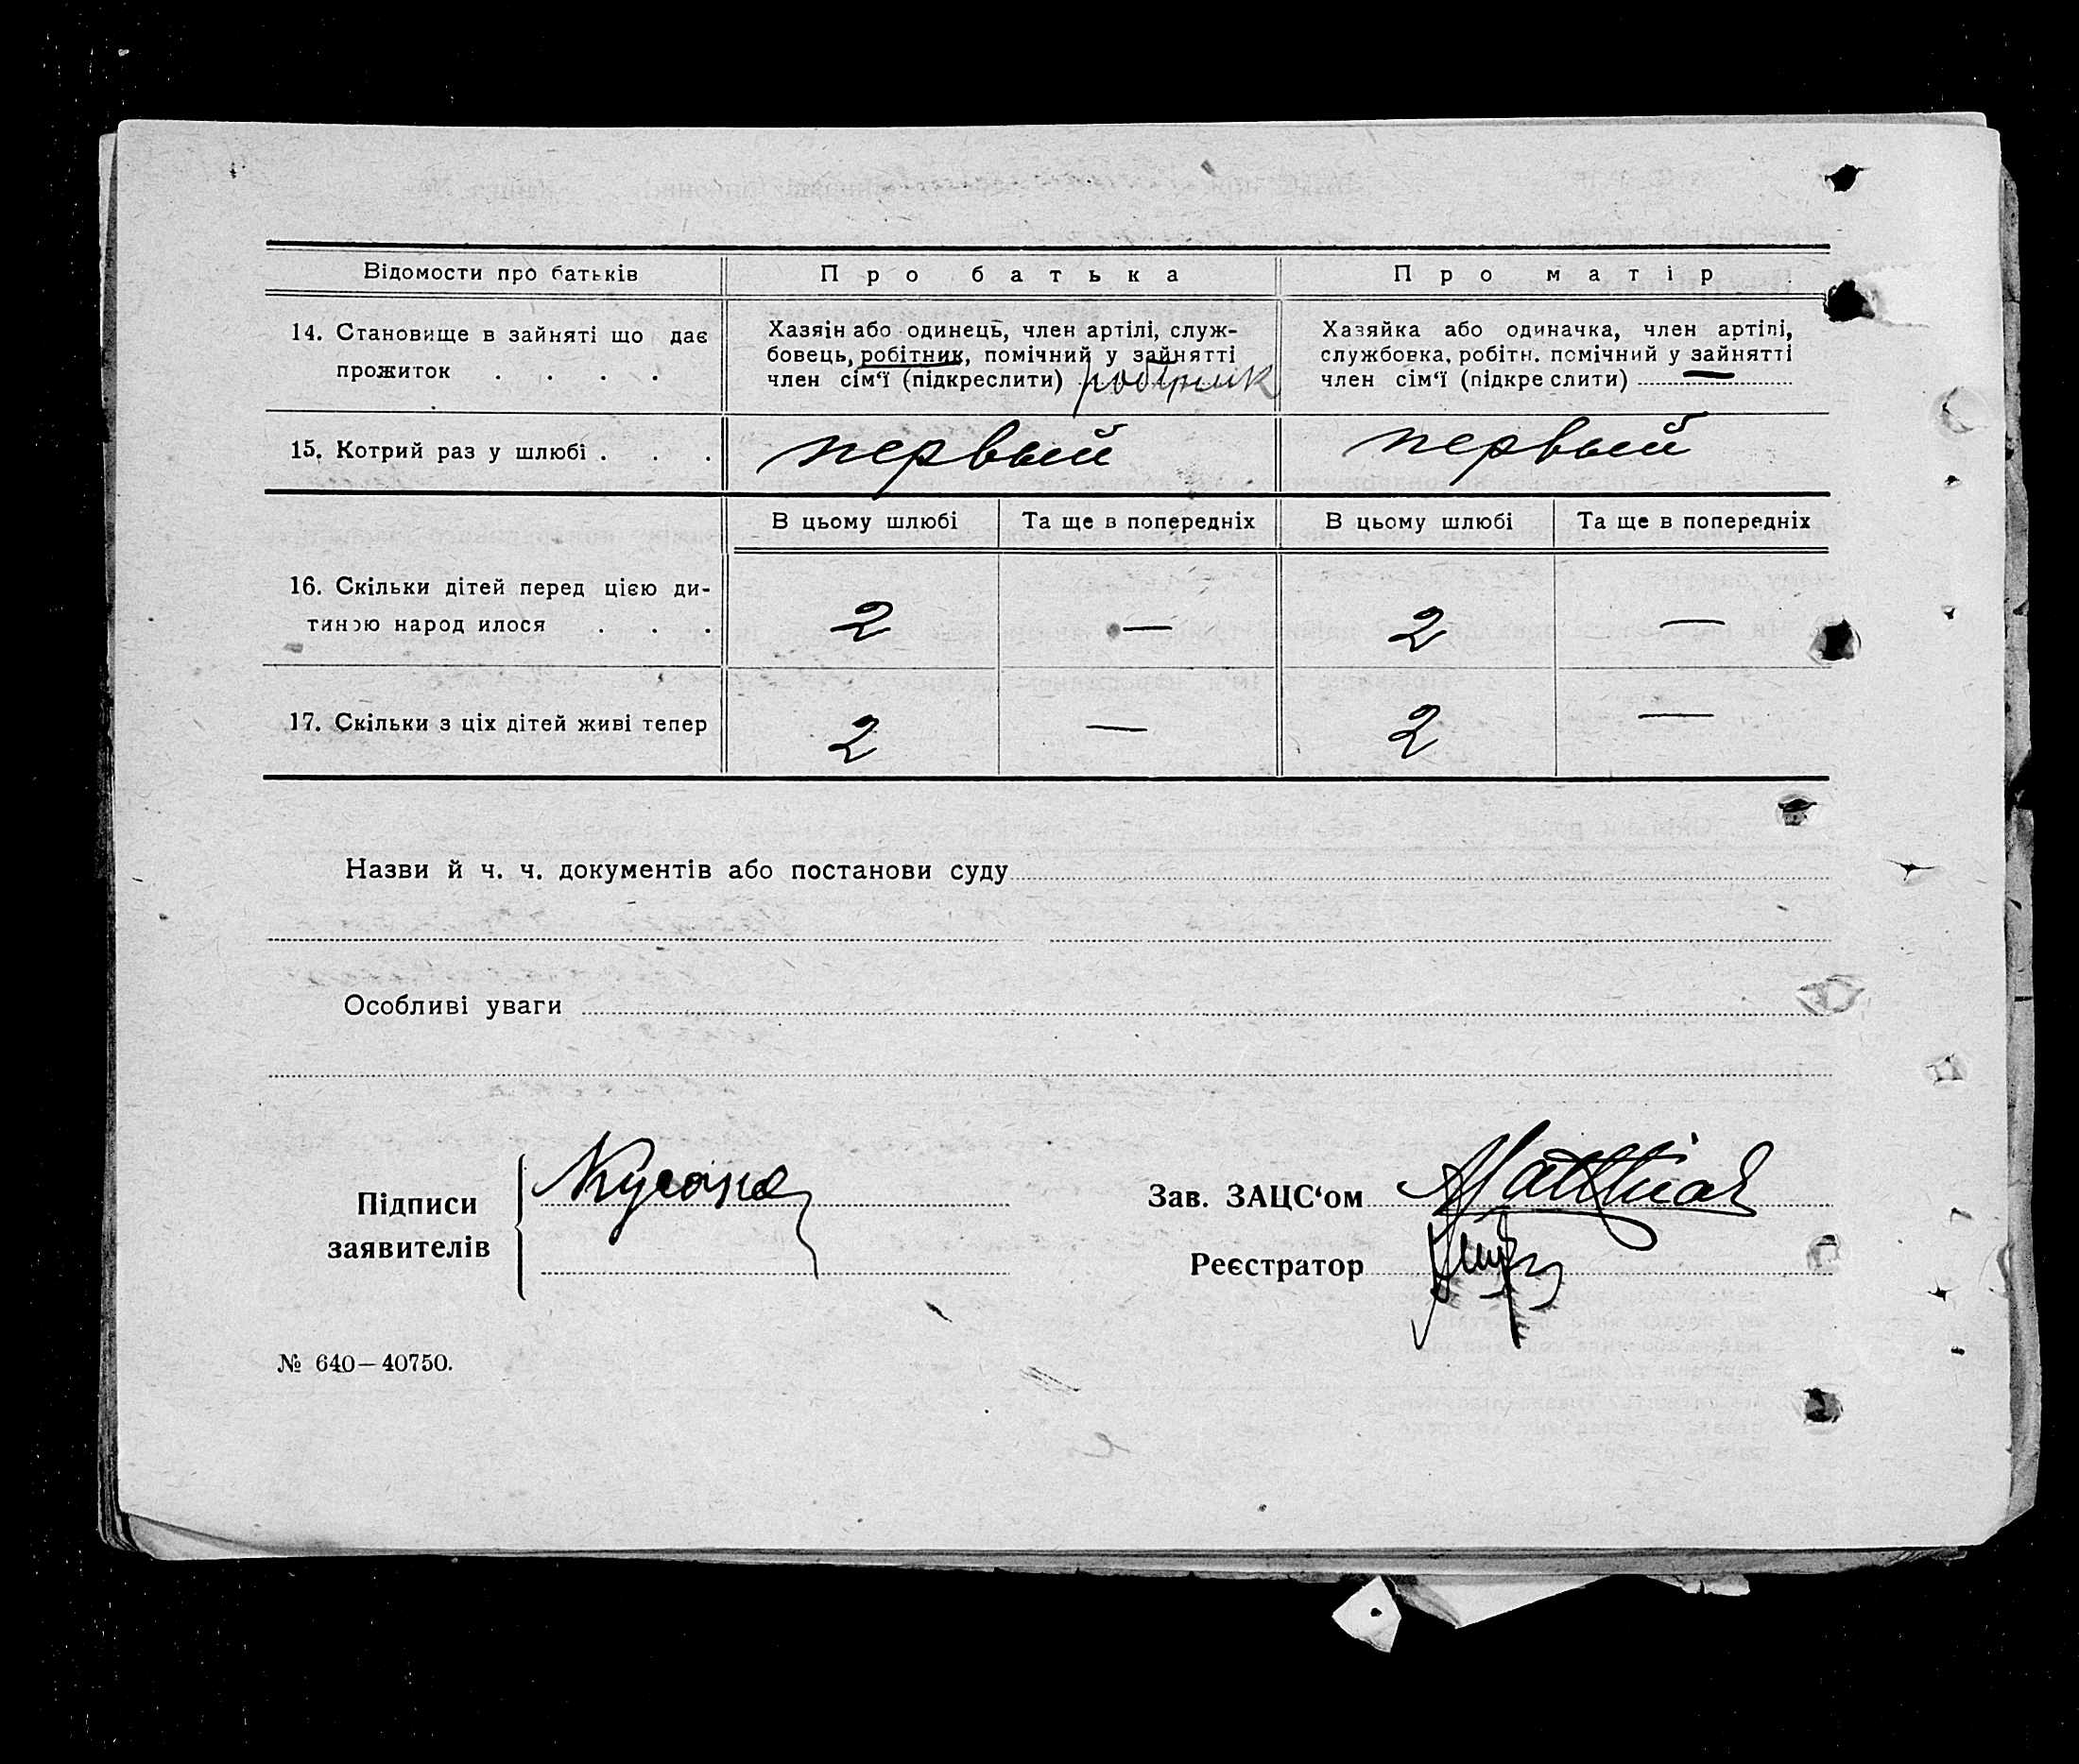 Відомости про батьків
Про батька
Про матір
14. Становище в зайняті що дає
прожиток . . . .
Хазяїн або одинець, член артілі, служ-
бовець, робітник, помічний у зайнятті
член сім‘ї (підкреслити) робітник
Хазяйка або одиначка, член артілі,
службовка, робітн. помічний у зайнятті
член сім‘ї (підкреслити) —
15. Котрий раз у шлюбі . . .
первый
первый
В цьому шлюбі
Та ще в попередніх
В цьому шлюбі
Та ще в попередніх
16. Скільки дітей перед цією ди-
тиною народилося . . .
2
—
2
—
17. Скільки з ціх дітей живі тепер
2
—
2
—
Назви й ч. ч. документів або постанови суду
Особливі уваги
Підписи
заявителів
Зав. ЗАЦС‘ом
Реєстратор
№ 640—40750.